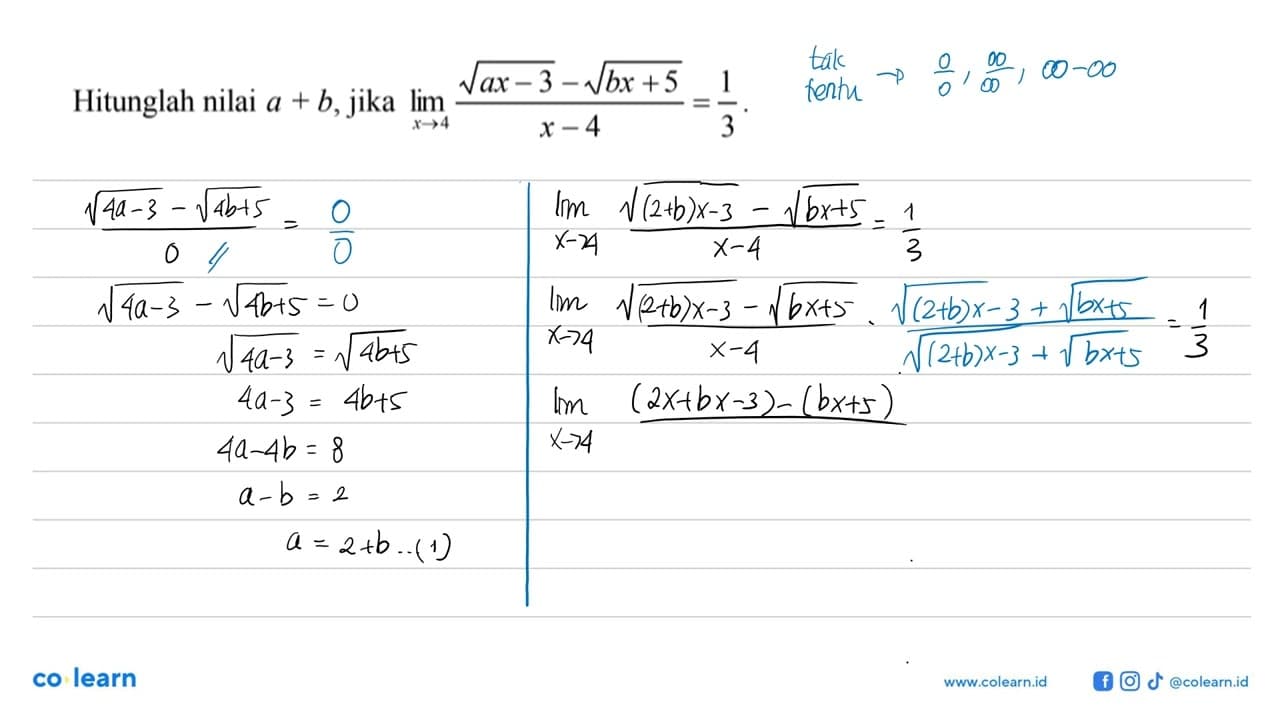 Hitunglah nilai a + b, jika lim x→4 (√(ax − 3) − √(bx + 5))/(x − 4) = 1/3.
tak tentu → 0/0, ∞/∞, ∞-∞
(√(4a-3) - √(4b+5))/0 = 0/0
√(4a-3) - √(4b+5) = 0
√(4a-3) = √(4b+5)
4a-3 = 4b+5
4a-4b = 8
a-b = 2
a = 2+b ..(1)
lim x→4 (√((2+b)x-3) - √(bx+5))/(x-4) = 1/3
lim x→4 (√((2+b)x-3) - √(bx+5))/(x-4) . (√((2+b)x-3) + √(bx+5))/(√((2+b)x-3) + √(bx+5)) = 1/3
lim x→4 (2x+bx-3)-(bx+5)
co learn
www.colearn.id
@colearn.id